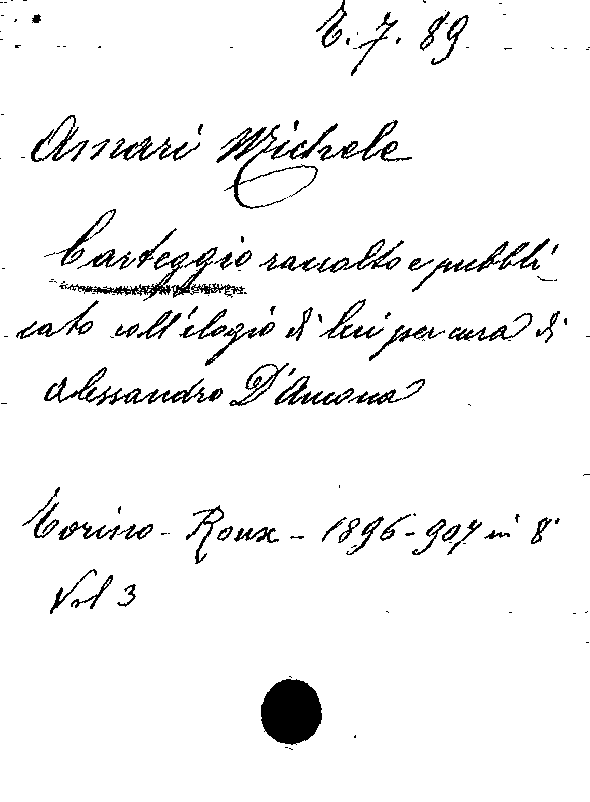 E. 7. 89
Amari Michele
Carteggio raccolto e pubbli-
cato coll'elogio di lui per cura di
Alessandro D'Ancona
Torino - Roux - 1896-907 in 8°
Vol 3